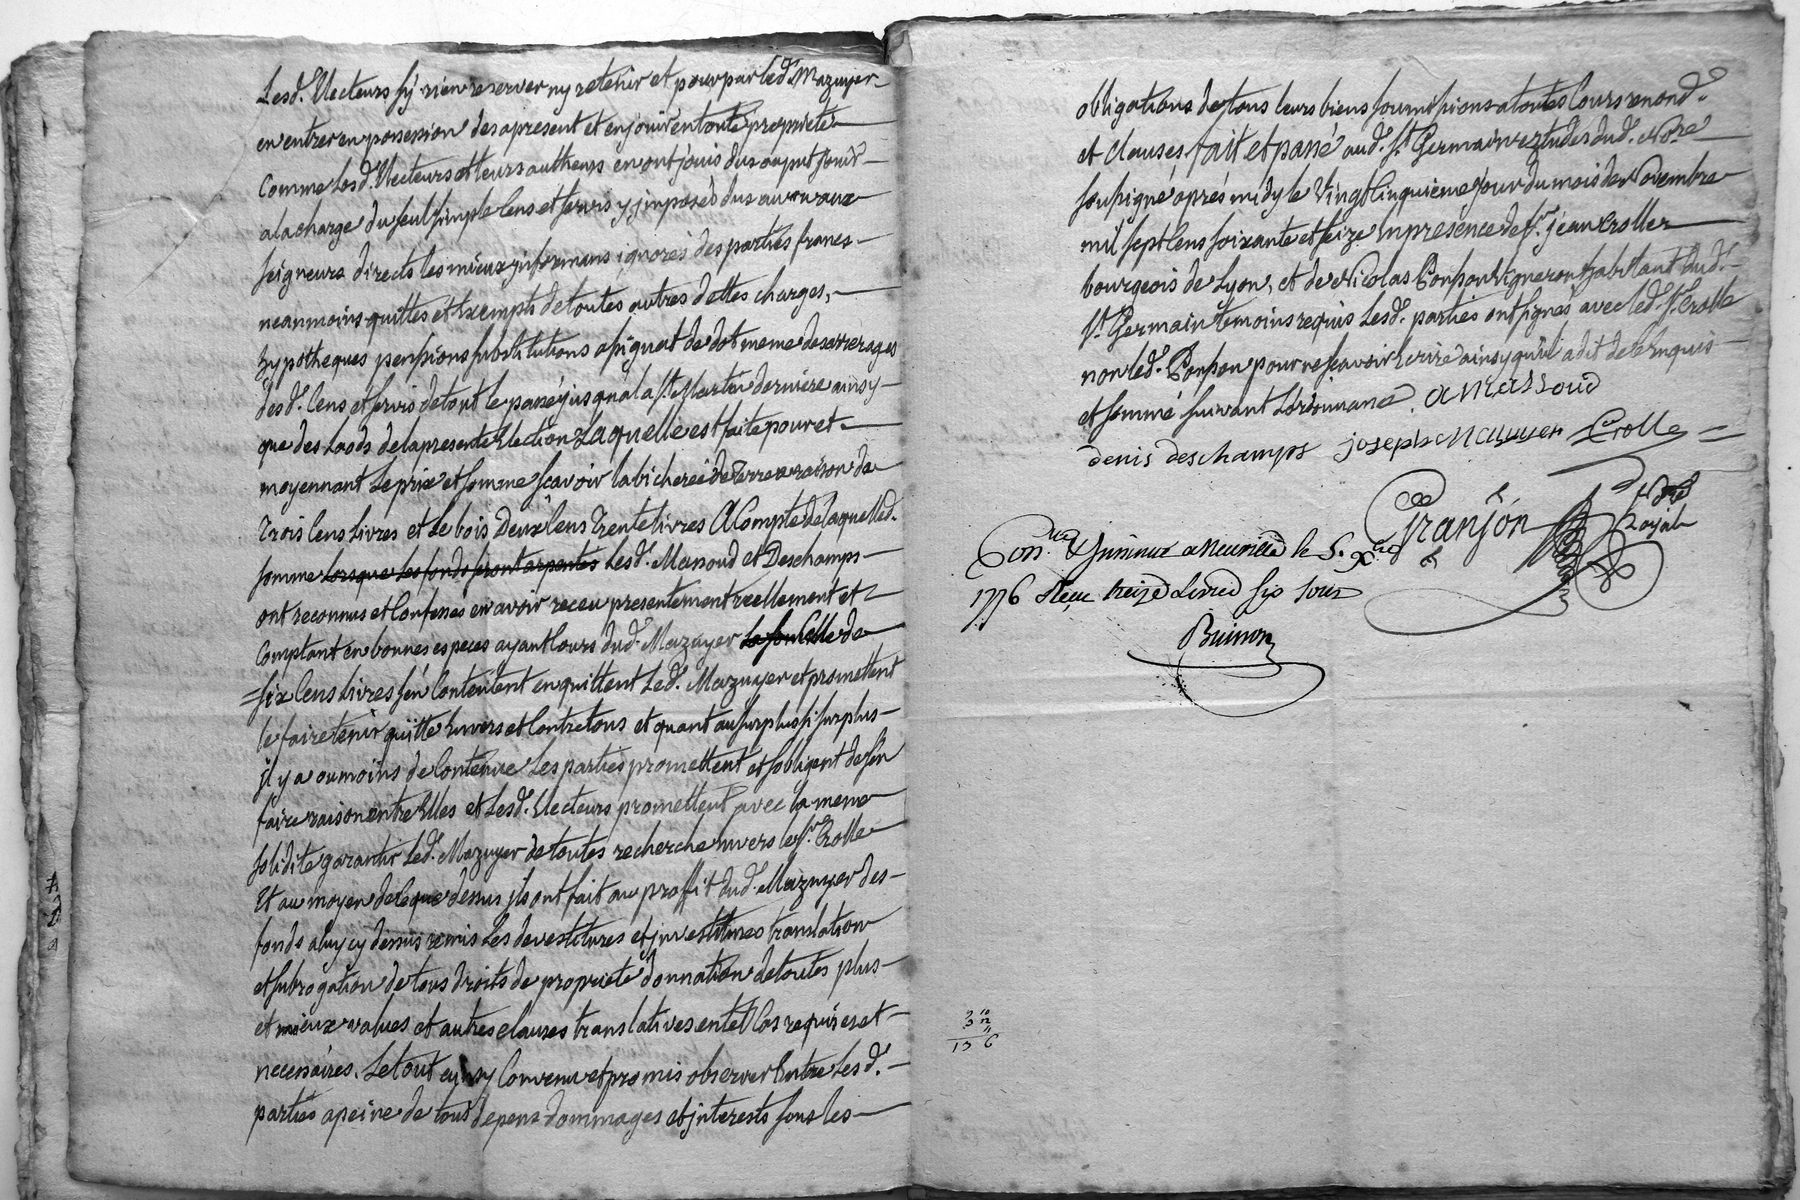 Lesd. Electeurs s'y rien reserver ny retenir et pour par led. Mazuyer
en entrer en possession des apresent et en jouir en toute propriete
comme Lesd. Electeurs et leurs autheurs en ont jouis dus ou put jouir
a la charge du seul simple Cens et servis y imposés dus au ou aux
seigneurs directs les mieux informans ignorés des parties francs
neanmoins quittes et Exempts de toutes autres dettes charges,
hypotheques penssions substitutions assignat de dot meme des arrerages
desd. Cens et servis de tout le passé jusqu'a la St Martin derniere ainsy
que des Laods de la presente Election Laquelle est faite pour et
moyennant Le prix et somme scavoir la bicherée de Terre a raison de
Trois Cens Livres et Le bois Deux Cens Trente livres A Compte de laquelle d.
somme Lorsque Les fonds seront arpentés Lesd. Massoud et Deschamps
ont reconnus et Confessés en avoir receu presentement reellement et
Comptant en bonnes especes ayant Cours dud. Mazuyer La somme de
= six Cens livres s'en Contentent en quittent Led. Mazuyer et promettent
le faire tenir quitte Envers et Contre tous et quant au surplus si surplus
il y a ou moins de Contenue Les parties promettent et s'obligent de s'en
faire raison entre Elles et Lesd. Electeurs promettent avec la meme
solidité garantir Led. Mazuyer de toutes recherche Envers le Sr. Crolle
Et au moyen de Ce que dessus ils ont fait au proffit dud. Mazuyer des
fonds a luy cy dessus remis Les devestitures et investitures translation
et subrogation de tous droits de propriete donnation de toutes plus
et mieux values et autres clauses translatives en tel Cas requises et
necessaires. Le tout ainsy Convenu et promis observer Entre Les d.
parties a peine de tous depens dommages et interests sous les
obligations de tous leurs biens soumissions a toutes Cours renond.
et Clauses fait et passé aud. St. Germain ez Etudes dud. Nore
soussigné après midy le Vingt Cinquieme jour du mois de Novembre
mil sept Cens soixante et seize En presence de Sr. jean Crolle
bourgeois de Lyon, et de Nicolas Ponson Vigneron habitant dud.
St. Germain temoins requis Lesd. parties ont signés avec led. Sr. Crolle
non led. Ponson pour ne scavoir Ecrire ainsy qu'il a dit de Ce Enquis
et sommé suivant L'ordonnance. A Massoud
denis deschamps joseph Mazuyer Crolle
Granjon Nore Royal
Con.lle & Insinué a Neuville le 5. Xbre
1776 Reçu treize Livres six sous
Buinon
3 10
3 12
13 6